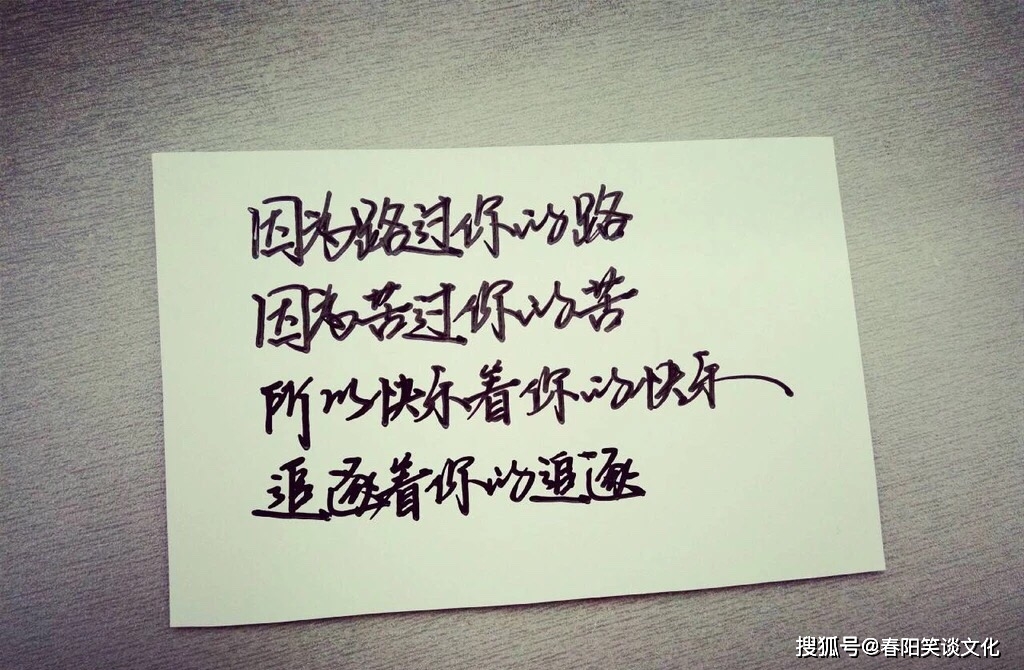 因为路过你的路
因为苦过你的苦
所以快乐着你的快乐
追逐着你的追逐
搜狐号@春阳笑谈文化